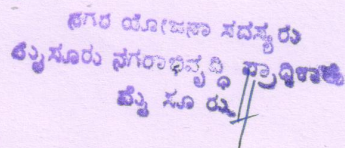 ನಗರ ಯೋಜನಾ ಸದಸ್ಯರು
ಮೈಸೂರು ನಗರಾಭಿವೃದ್ಧಿ ಪ್ರಾಧಿಕಾರ
ಮೈ ಸೂ ರು